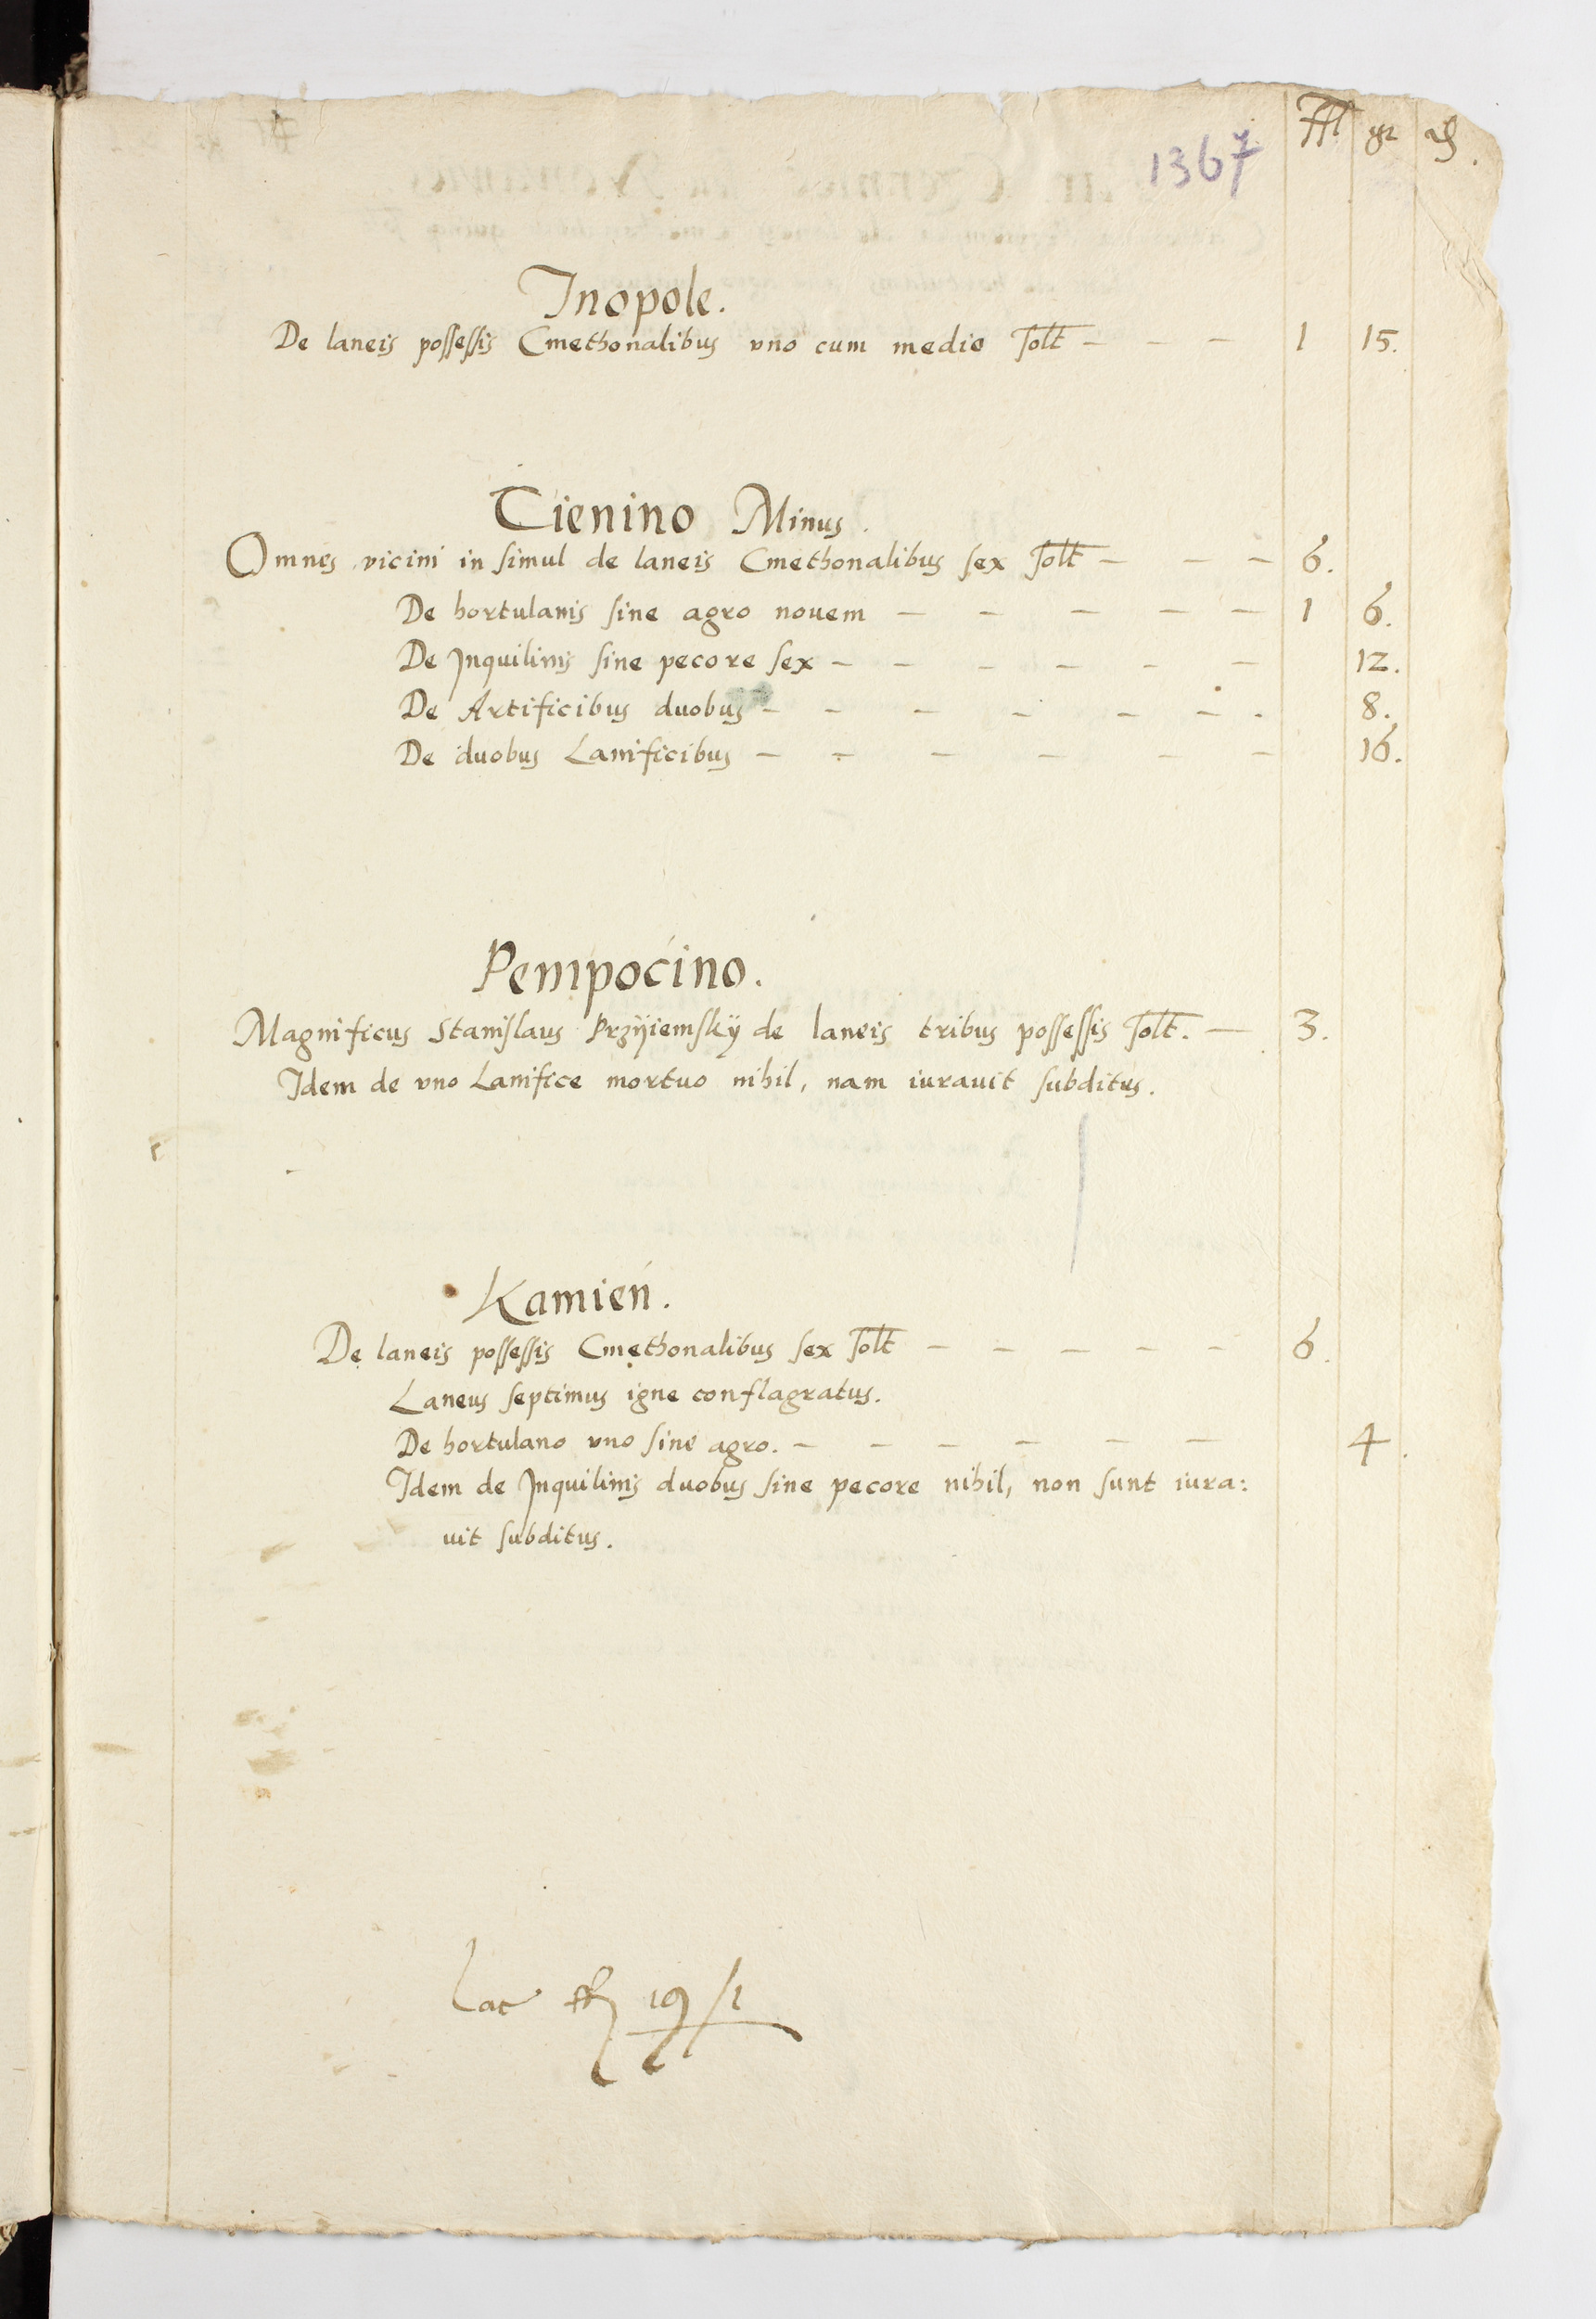 1367
ffl gr d
Inopole.
De laneis possessis Cmethonalibus vno cum medio solt — — — 1 15.
Cienino Minus.
Omnes vicini in simul de laneis Cmethonalibus sex solt — — — 6.
De hortulanis sine agro nouem — — — — — 1 6.
De Inquilinis sine pecore sex — — — — — — 12.
De Artificibus duobus — — — — — — . 8.
De duobus Lanificibus — — — — — — 16.
Pempocino.
Magnificus Stanislaus Przÿiemskÿ de laneis tribus possessis solt. — 3.
Idem de vno Lanifice mortuo nihil, nam iurauit subditus.
Kamień.
De laneis possessis Cmethonalibus sex solt — — — — — 6.
Laneus septimus igne conflagratus.
De hortulano vno sine agro. — — — — — — 4.
Idem de Inquilinis duobus sine pecore nihil, non sunt iura:
uit subditus.
Lat ff 19/1